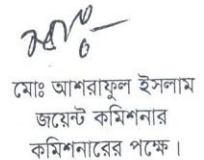 মোঃ আশরাফুল ইসলাম
জয়েন্ট কমিশনার
কমিশনারের পক্ষে।